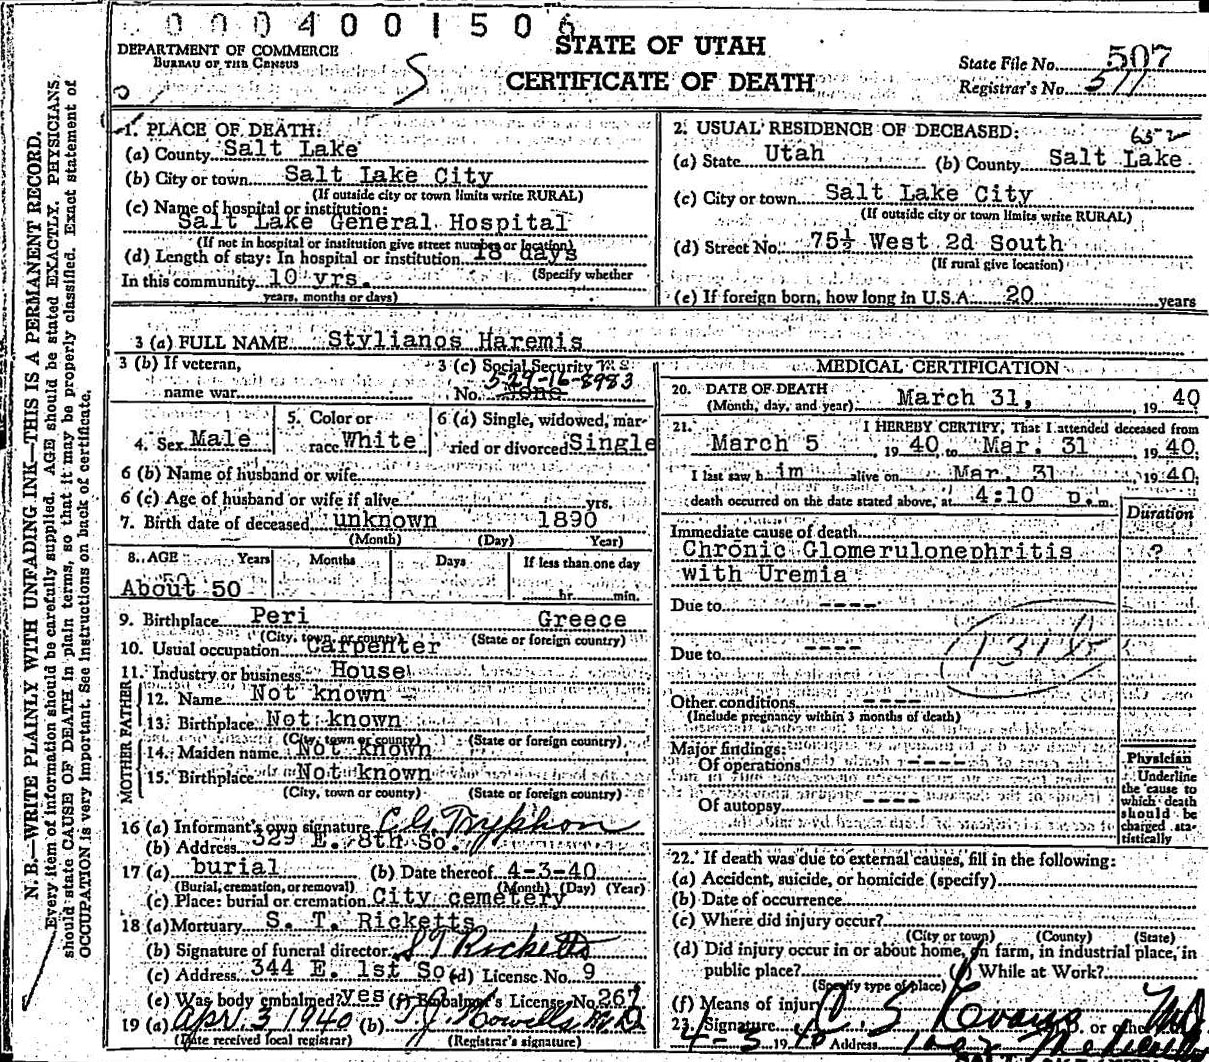 0004001506
DEPARTMENT OF COMMERCE
BUREAU OF THE CENSUS
S
STATE OF UTAH
CERTIFICATE OF DEATH
State File No. 507
Registrar's No. 511
N. B.—WRITE PLAINLY WITH UNFADING INK—THIS IS A PERMANENT RECORD.
Every item of information should be carefully supplied. AGE should be stated EXACTLY. PHYSICIANS
should state CAUSE OF DEATH in plain terms, so that it may be properly classified. Exact statement of
OCCUPATION is very important. See instructions on back of certificate.
1. PLACE OF DEATH:
(a) County Salt Lake
(b) City or town Salt Lake City
(If outside city or town limits write RURAL)
(c) Name of hospital or institution:
Salt Lake General Hospital
(If not in hospital or institution give street number or location)
(d) Length of stay: In hospital or institution 18 days
(Specify whether
In this community 10 yrs.
years, months or days)
2. USUAL RESIDENCE OF DECEASED: 652
(a) State Utah (b) County Salt Lake
(c) City or town Salt Lake City
(If outside city or town limits write RURAL)
(d) Street No. 75½ West 2d South
(If rural give location)
(e) If foreign born, how long in U.S.A. 20 years
3 (a) FULL NAME Stylianos Haremis
3 (b) If veteran,
name war
3 (c) Social Security
No. 529-16-8983
none
4. Sex Male
5. Color or
race White
6 (a) Single, widowed, mar-
ried or divorced Single
6 (b) Name of husband or wife
6 (c) Age of husband or wife if alive yrs.
7. Birth date of deceased unknown 1890
(Month) (Day) Year)
8. AGE Years Months Days If less than one day
50
About 50 hr. min.
9. Birthplace Peri Greece
(City, town, or county) (State or foreign country)
10. Usual occupation Carpenter
11. Industry or business House
FATHER
12. Name Not known
13. Birthplace Not known
(City, town or county) (State or foreign country)
MOTHER
14. Maiden name Not known
15. Birthplace Not known
(City, town or county) (State or foreign country)
16 (a) Informant's own signature C. G. Tryphon
(b) Address 329 E. 8th So.
17 (a) burial (b) Date thereof 4-3-40
(Burial, cremation, or removal) (Month) (Day) (Year)
(c) Place: burial or cremation City cemetery
18 (a) Mortuary S. T. Ricketts
(b) Signature of funeral director S T Ricketts
(c) Address 344 E. 1st So. (d) License No. 9
(e) Was body embalmed? yes (f) Embalmer's License No. 267
19 (a) Apr. 3, 1940 (b) T. J. Howells M.D.
(Date received local registrar) (Registrar's signature)
MEDICAL CERTIFICATION
20. DATE OF DEATH
(Month, day, and year) March 31, , 19 40
21. I HEREBY CERTIFY, That I attended deceased from
March 5 , 19 40 to Mar. 31 , 19 40;
I last saw h im alive on Mar. 31 , 19 40;
death occurred on the date stated above, at 4:10 p.m.
Duration
Immediate cause of death
Chronic Glomerulonephritis ?
with Uremia
Due to ----
Due to ----
Other conditions ----
(Include pregnancy within 3 months of death)
Major findings:
Of operations ----
Of autopsy ----
Physician
Underline
the cause to
which death
should be
charged sta-
tistically
22. If death was due to external causes, fill in the following:
(a) Accident, suicide, or homicide (specify)
(b) Date of occurrence
(c) Where did injury occur?
(City or town) (County) (State)
(d) Did injury occur in or about home, on farm, in industrial place, in
public place? (e) While at Work?
(Specify type of place)
(f) Means of injury
23. Signature C. S. Evans M.D. or other
4-3-19 40 Address